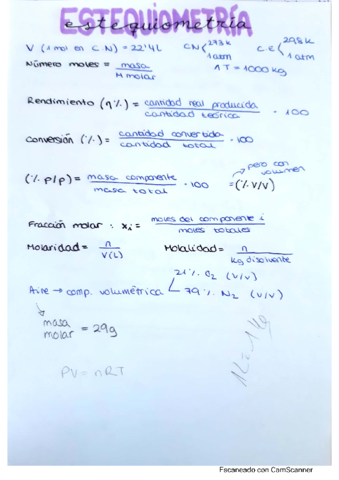 ESTEQUIOMETRÍA
estequiometría
V (1 mol en C N) = 22'4L CN < 273k 1atm C.E < 298k 1atm
Número moles = masa / M molar 1T = 1000kg
Rendimiento (η%) = cantidad real producida / cantidad teórica · 100
Conversión (%) = cantidad convertida / cantidad total · 100
(% p/p) = masa componente / masa total · 100 = (% V/V) pero con volumen
Fracción molar : xᵢ = moles del componente i / moles totales
Molaridad = n / V(L) Molalidad = n / kg disolvente
Aire → comp. volumétrica 21% O₂ (v/v) 79% N₂ (v/v)
masa molar = 29g
PV = nRT
1L = 1kg
Escaneado con CamScanner